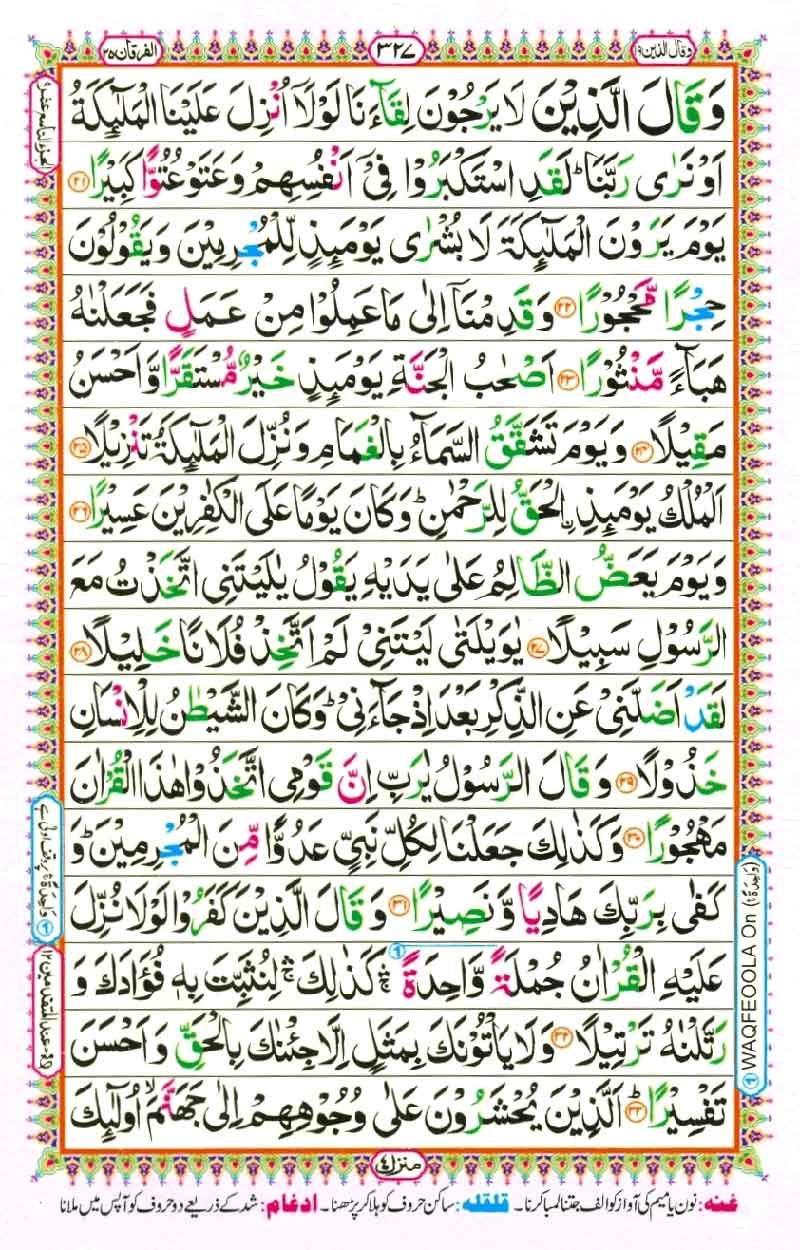 وقال الذين ١٩
٣٢٧
الفرقان ٢٥
وَقَالَ الَّذِيْنَ لَا يَرْجُوْنَ لِقَآءَنَا لَوْلَاۤ اُنْزِلَ عَلَيْنَا الْمَلٰٓئِكَةُ
اَوْ نَرٰى رَبَّنَا ؕ لَقَدِ اسْتَكْبَرُوْا فِیْۤ اَنْفُسِهِمْ وَعَتَوْ عُتُوًّا كَبِيْرًا ﴿۲۱﴾
يَوْمَ يَرَوْنَ الْمَلٰٓئِكَةَ لَا بُشْرٰى يَوْمَئِذٍ لِّلْمُجْرِمِيْنَ وَيَقُوْلُوْنَ
حِجْرًا مَّحْجُوْرًا ﴿۲۲﴾ وَقَدِمْنَاۤ اِلٰى مَا عَمِلُوْا مِنْ عَمَلٍ فَجَعَلْنٰهُ
هَبَآءً مَّنْثُوْرًا ﴿۲۳﴾ اَصْحٰبُ الْجَنَّةِ يَوْمَئِذٍ خَيْرٌ مُّسْتَقَرًّا وَّاَحْسَنُ
مَقِيْلًا ﴿۲۴﴾ وَيَوْمَ تَشَقَّقُ السَّمَآءُ بِالْغَمَامِ وَنُزِّلَ الْمَلٰٓئِكَةُ تَنْزِيْلًا ﴿۲۵﴾
اَلْمُلْكُ يَوْمَئِذِ اۨلْحَقُّ لِلرَّحْمٰنِ ؕ وَكَانَ يَوْمًا عَلَى الْكٰفِرِيْنَ عَسِيْرًا ﴿۲۶﴾
وَيَوْمَ يَعَضُّ الظَّالِمُ عَلٰى يَدَيْهِ يَقُوْلُ يٰلَيْتَنِى اتَّخَذْتُ مَعَ
الرَّسُوْلِ سَبِيْلًا ﴿۲۷﴾ يٰوَيْلَتٰى لَيْتَنِىْ لَمْ اَتَّخِذْ فُلَانًا خَلِيْلًا ﴿۲۸﴾
لَقَدْ اَضَلَّنِىْ عَنِ الذِّكْرِ بَعْدَ اِذْ جَآءَنِىْ ؕ وَكَانَ الشَّيْطٰنُ لِلْاِنْسَانِ
خَذُوْلًا ﴿۲۹﴾ وَقَالَ الرَّسُوْلُ يٰرَبِّ اِنَّ قَوْمِى اتَّخَذُوْا هٰذَا الْقُرْاٰنَ
مَهْجُوْرًا ﴿۳۰﴾ وَكَذٰلِكَ جَعَلْنَا لِكُلِّ نَبِىٍّ عَدُوًّا مِّنَ الْمُجْرِمِيْنَ ؕ وَ
كَفٰى بِرَبِّكَ هَادِيًا وَّنَصِيْرًا ﴿۳۱﴾ وَقَالَ الَّذِيْنَ كَفَرُوْا لَوْلَا نُزِّلَ
عَلَيْهِ الْقُرْاٰنُ جُمْلَةً وَّاحِدَةً ۛۚ كَذٰلِكَ ۛۚ لِنُثَبِّتَ بِهٖ فُؤَادَكَ وَ
رَتَّلْنٰهُ تَرْتِيْلًا ﴿۳۲﴾ وَلَا يَاْتُوْنَكَ بِمَثَلٍ اِلَّا جِئْنٰكَ بِالْحَقِّ وَاَحْسَنَ
تَفْسِيْرًا ﴿۳۳﴾ؕ اَلَّذِيْنَ يُحْشَرُوْنَ عَلٰى وُجُوْهِهِمْ اِلٰى جَهَنَّمَ ۙ اُولٰٓئِكَ
الجزء التاسع عشر
① WAQFEOOLA On (وَاحِدَةً)
منزل ٤
غنه: نون یا میم کی آواز کو الف جتنا لمبا کرنا۔ قلقله: ساکن حروف کو ہلا کر پڑھنا۔ ادغام: شد کے ذریعے دو حروف کو آپس میں ملانا